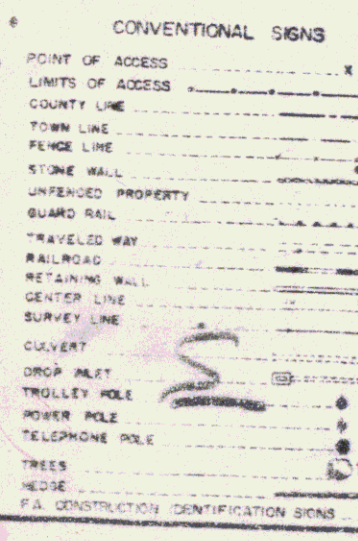 CONVENTIONAL SIGNS
POINT OF ACCESS X
LIMITS OF ACCESS
COUNTY LINE
TOWN LINE
FENCE LINE
STONE WALL
UNFENCED PROPERTY
GUARD RAIL
TRAVELED WAY
RAILROAD
RETAINING WALL
CENTER LINE
SURVEY LINE
CULVERT
DROP INLET
TROLLEY POLE
POWER POLE
TELEPHONE POLE
TREES
HEDGE
F.A. CONSTRUCTION IDENTIFICATION SIGNS